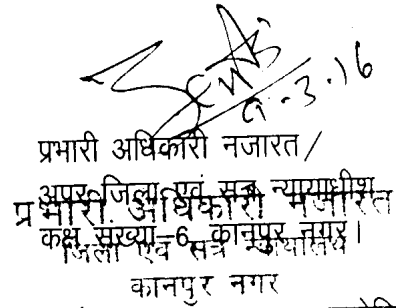 9.3.16
प्रभारी अधिकारी नजारत/
अपर जिला एवं सत्र न्यायाधीश
प्रभारी अधिकारी नजारत
कक्ष संख्या-6, कानपुर नगर।
जिला एवं सत्र न्यायालय
कानपुर नगर